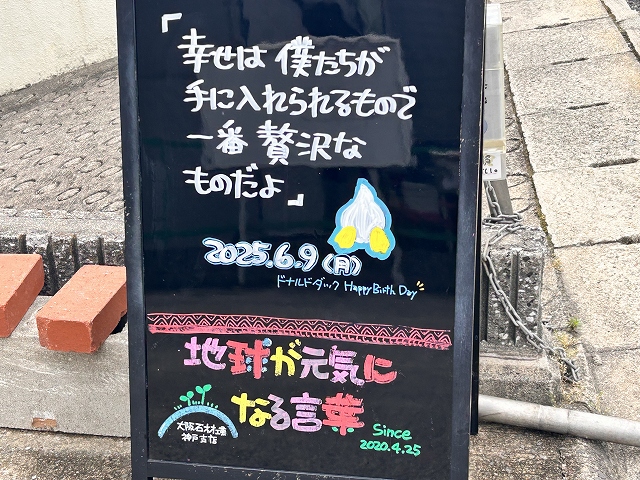 「幸せは 僕たちが
手に入れられるもので
一番 贅沢な
ものだよ」
2025.6.9(月)
ドナルドダック Happy Birth Day
地球が元気に
なる言葉
大阪石材工業
神戸支店
Since
2020.4.25